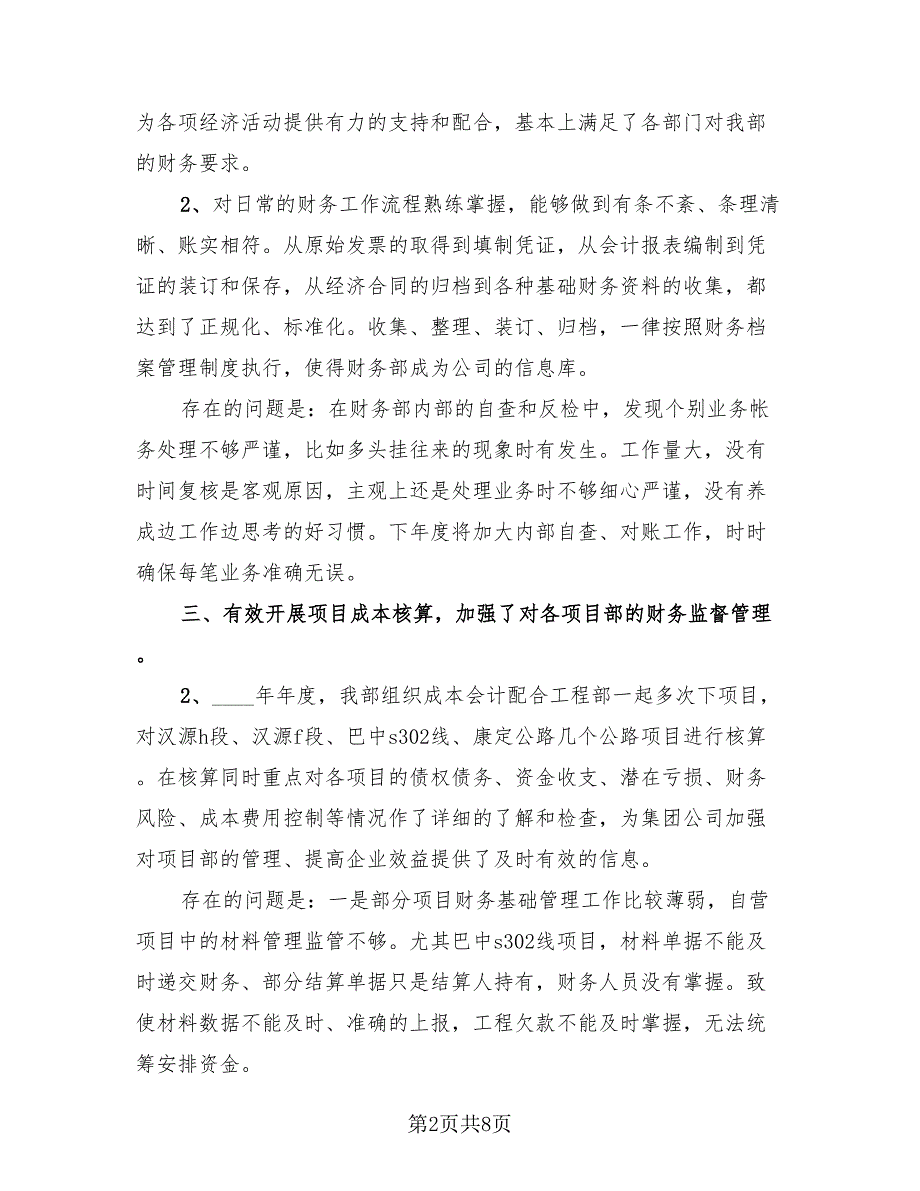 为各项经济活动提供有力的支持和配合，基本上满足了各部门对我部
的财务要求。
2、对日常的财务工作流程熟练掌握，能够做到有条不紊、条理清
晰、账实相符。从原始发票的取得到填制凭证，从会计报表编制到凭
证的装订和保存，从经济合同的归档到各种基础财务资料的收集，都
达到了正规化、标准化。收集、整理、装订、归档，一律按照财务档
案管理制度执行，使得财务部成为公司的信息库。
存在的问题是：在财务部内部的自查和反检中，发现个别业务帐
务处理不够严谨，比如多头挂往来的现象时有发生。工作量大，没有
时间复核是客观原因，主观上还是处理业务时不够细心严谨，没有养
成边工作边思考的好习惯。下年度将加大内部自查、对账工作，时时
确保每笔业务准确无误。
三、有效开展项目成本核算，加强了对各项目部的财务监督管理
。
2、____年年度，我部组织成本会计配合工程部一起多次下项目，
对汉源h段、汉源f段、巴中s302线、康定公路几个公路项目进行核算
。在核算同时重点对各项目的债权债务、资金收支、潜在亏损、财务
风险、成本费用控制等情况作了详细的了解和检查，为集团公司加强
对项目部的管理、提高企业效益提供了及时有效的信息。
存在的问题是：一是部分项目财务基础管理工作比较薄弱，自营
项目中的材料管理监管不够。尤其巴中s302线项目，材料单据不能及
时递交财务、部分结算单据只是结算人持有，财务人员没有掌握。致
使材料数据不能及时、准确的上报，工程欠款不能及时掌握，无法统
筹安排资金。
第2页共8页